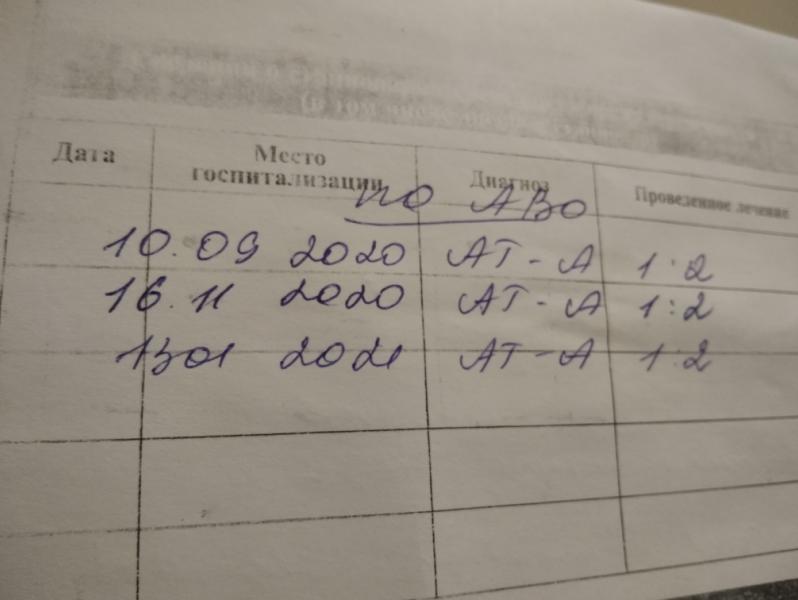 Дата Место госпитализации Диагноз Проведенное лечение
по АВО
10.09 2020 АТ-А 1:2
16.11 2020 АТ-А 1:2
13.01 2021 АТ-А 1:2